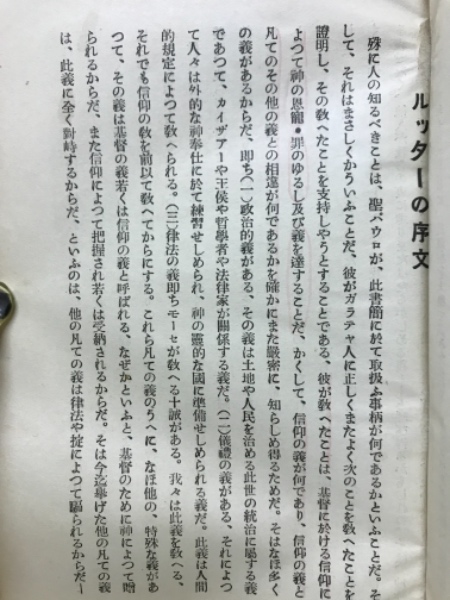 ルッターの序文
殊に人の知るべきことは、聖パウロが、此書簡に於て取扱ふ事柄が何であるかといふことだ。そ
して、それはまさしくかういふことだ、彼がガラテヤ人に正しくまたよく次のことを敎へたことを
證明し、その敎へたことを支持しやうとすることである、彼が敎へたことは、基督に於ける信仰に
よつて神の恩寵・罪のゆるし及び義を達することだ、かくして、信仰の義が何であり、信仰の義と
凡てのその他の義との相違が何であるかを確かにまた嚴密に、知らしめ得るためだ。そはなほ多く
の義があるからだ、即ち(一)政治的義がある、その義は土地や人民を治める此世の統治に屬する義
であつて、カイザアーや王侯や哲學者や法律家が關係する義だ。(二)儀禮の義がある、それによつ
て人々は外的な神奉仕に於て練習せしめられ、神の靈的な國に準備せしめられる義だ。此義は人間
的規定によつて敎へられる。(三)律法の義即ちモーセが敎へる十誡がある。我々は此義を敎へる、
それでも信仰の敎を前以て敎へてからにする。これら凡ての義のうへに、なほ他の、特殊な義があ
つて、その義は基督の義若くは信仰の義と呼ばれる、なぜかといふと、基督のために神によつて贈
られるからだ、また信仰によつて把握され若くは受納されるからだ。そは今迄擧げた他の凡ての義
は、此義に全く對峙するからだ、といふのは、他の凡ての義は律法や掟によつて驅られるからだ—